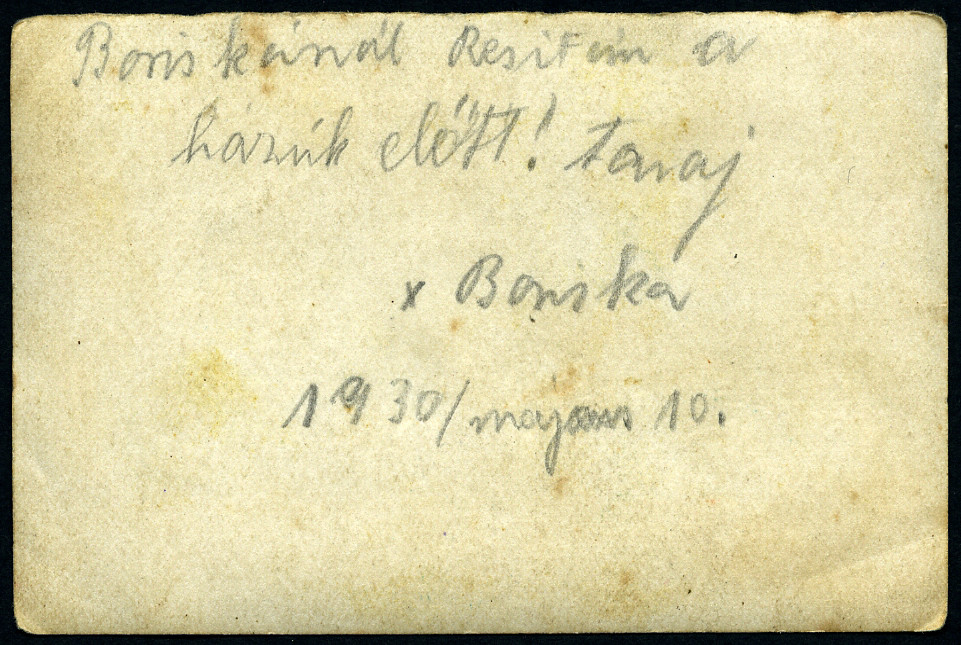 Boriskánál Resitán a
házúk előtt! tavaj
x Boriska
1930/ május 10.